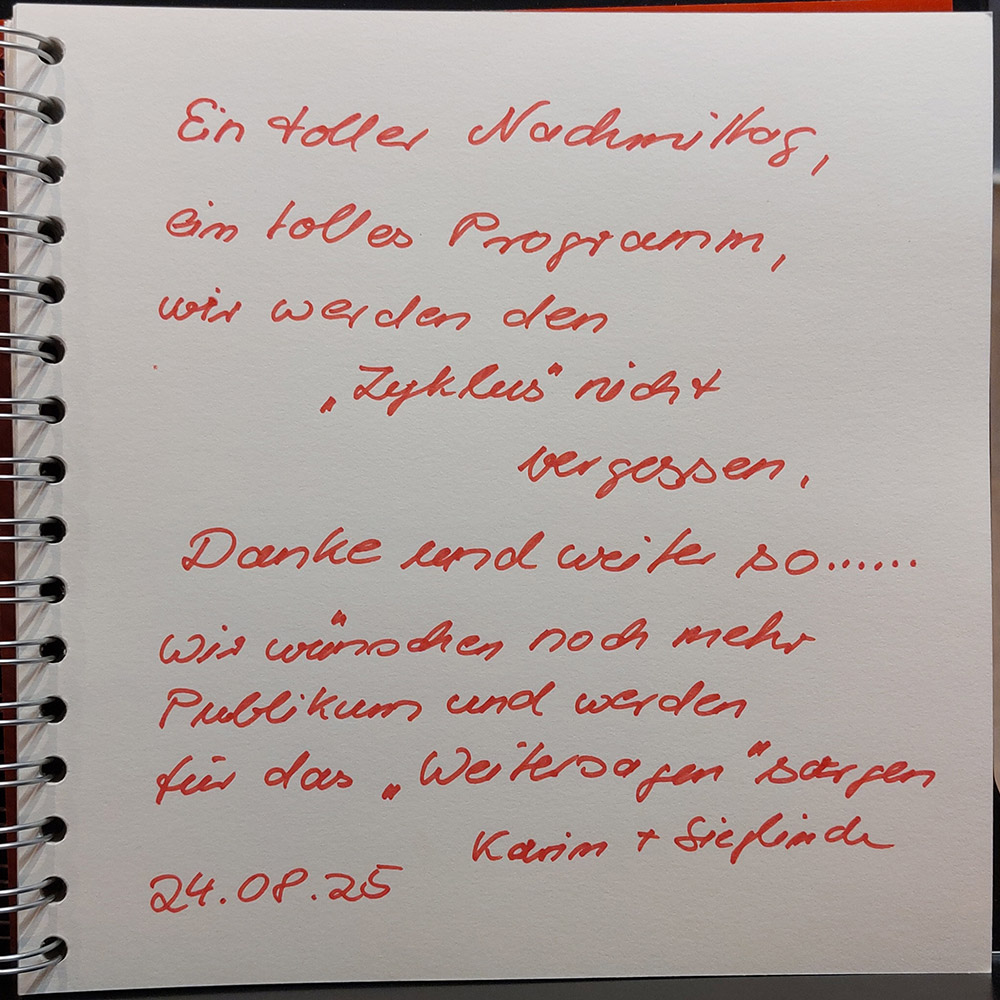 Ein toller Nachmittag,
ein tolles Programm,
wir werden den
„Zyklus“ nicht
vergessen.
Danke und weiter so......
Wir wünschen noch mehr
Publikum und werden
für das „Weitersagen“ sorgen
Karin + Sieglinde
24.08.25